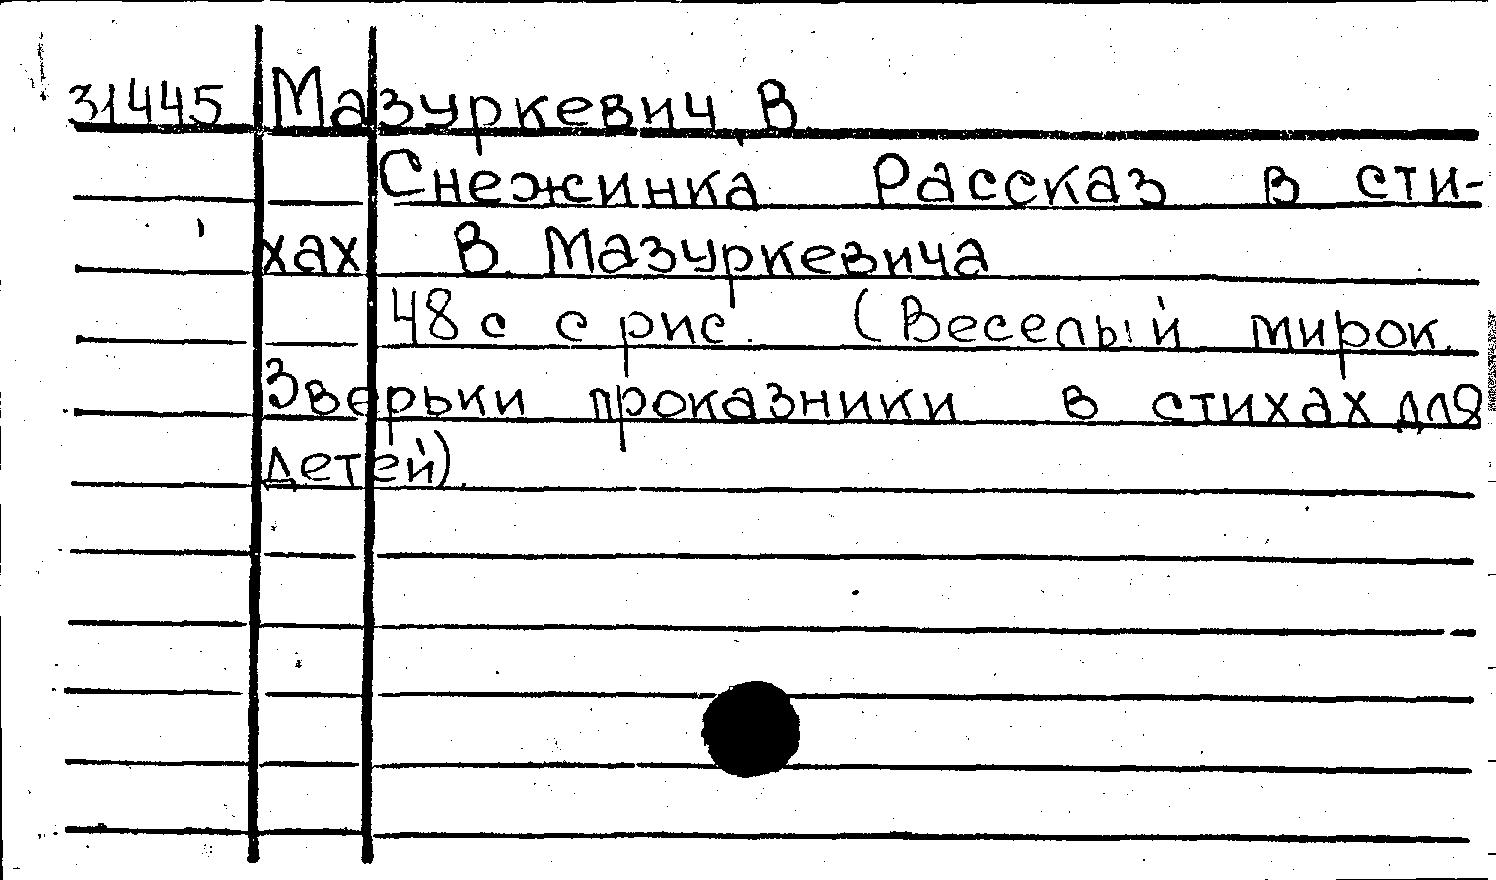 31445 Мазуркевич В
Снежинка Рассказ в сти-
хах В. Мазуркевича
48 с с рис. (Веселый мирок.
Зверьки проказники в стихах для
детей).